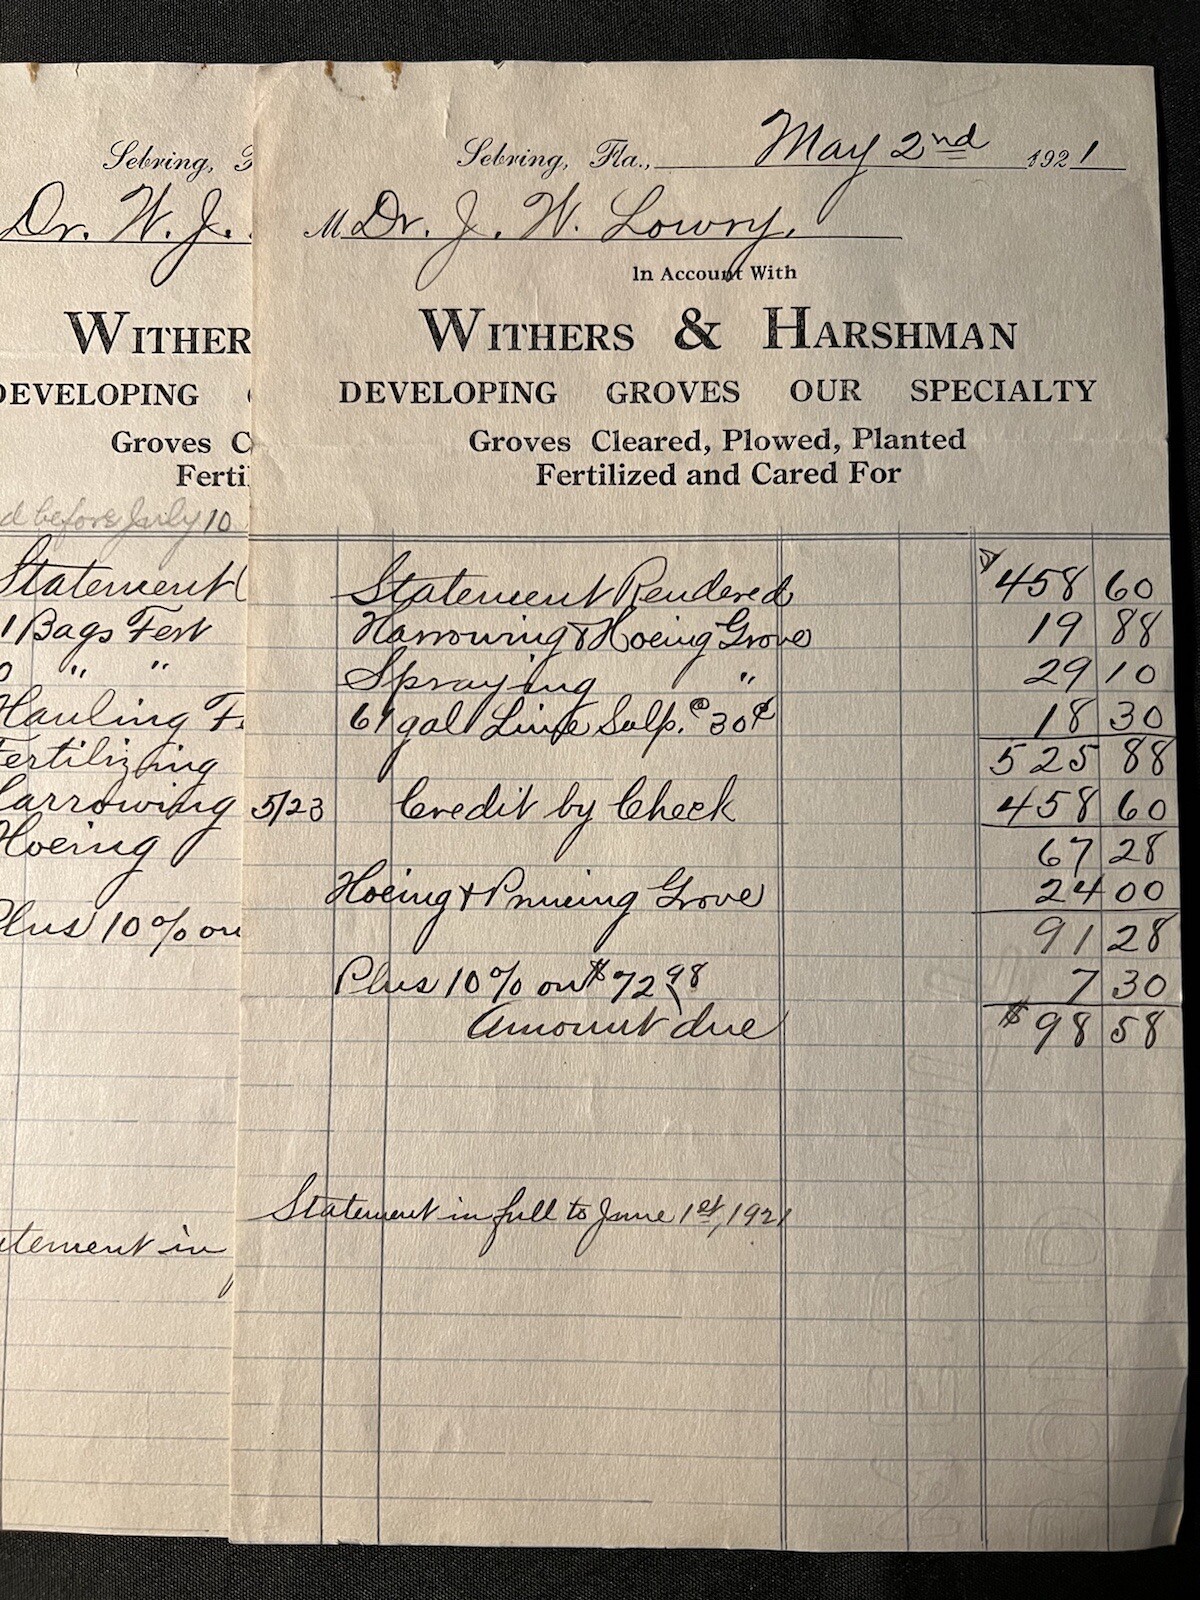 Sebring, F
Dr. W. J.
WITHER
DEVELOPING
Groves C
Ferti
d before July 10
Statement
1 Bags Fert
" "
Hauling F
Fertilizing
Harrowing
Hoeing
Plus 10% on
tement in
Sebring, Fla., May 2nd 1921
M Dr. J. W. Lowry.
In Account With
WITHERS & HARSHMAN
DEVELOPING GROVES OUR SPECIALTY
Groves Cleared, Plowed, Planted
Fertilized and Cared For
Statement Rendered $458 60
Harrowing & Hoeing Grove 19 88
Spraying " 29 10
61 gal Lime Sulp. @ 30¢ 18 30
525 88
5/23 Credit by Check 458 60
67 28
Hoeing & Pruneing Grove 24 00
91 28
Plus 10% on $72 98 7 30
Amount due $98 58
Statement in full to June 1st, 1921